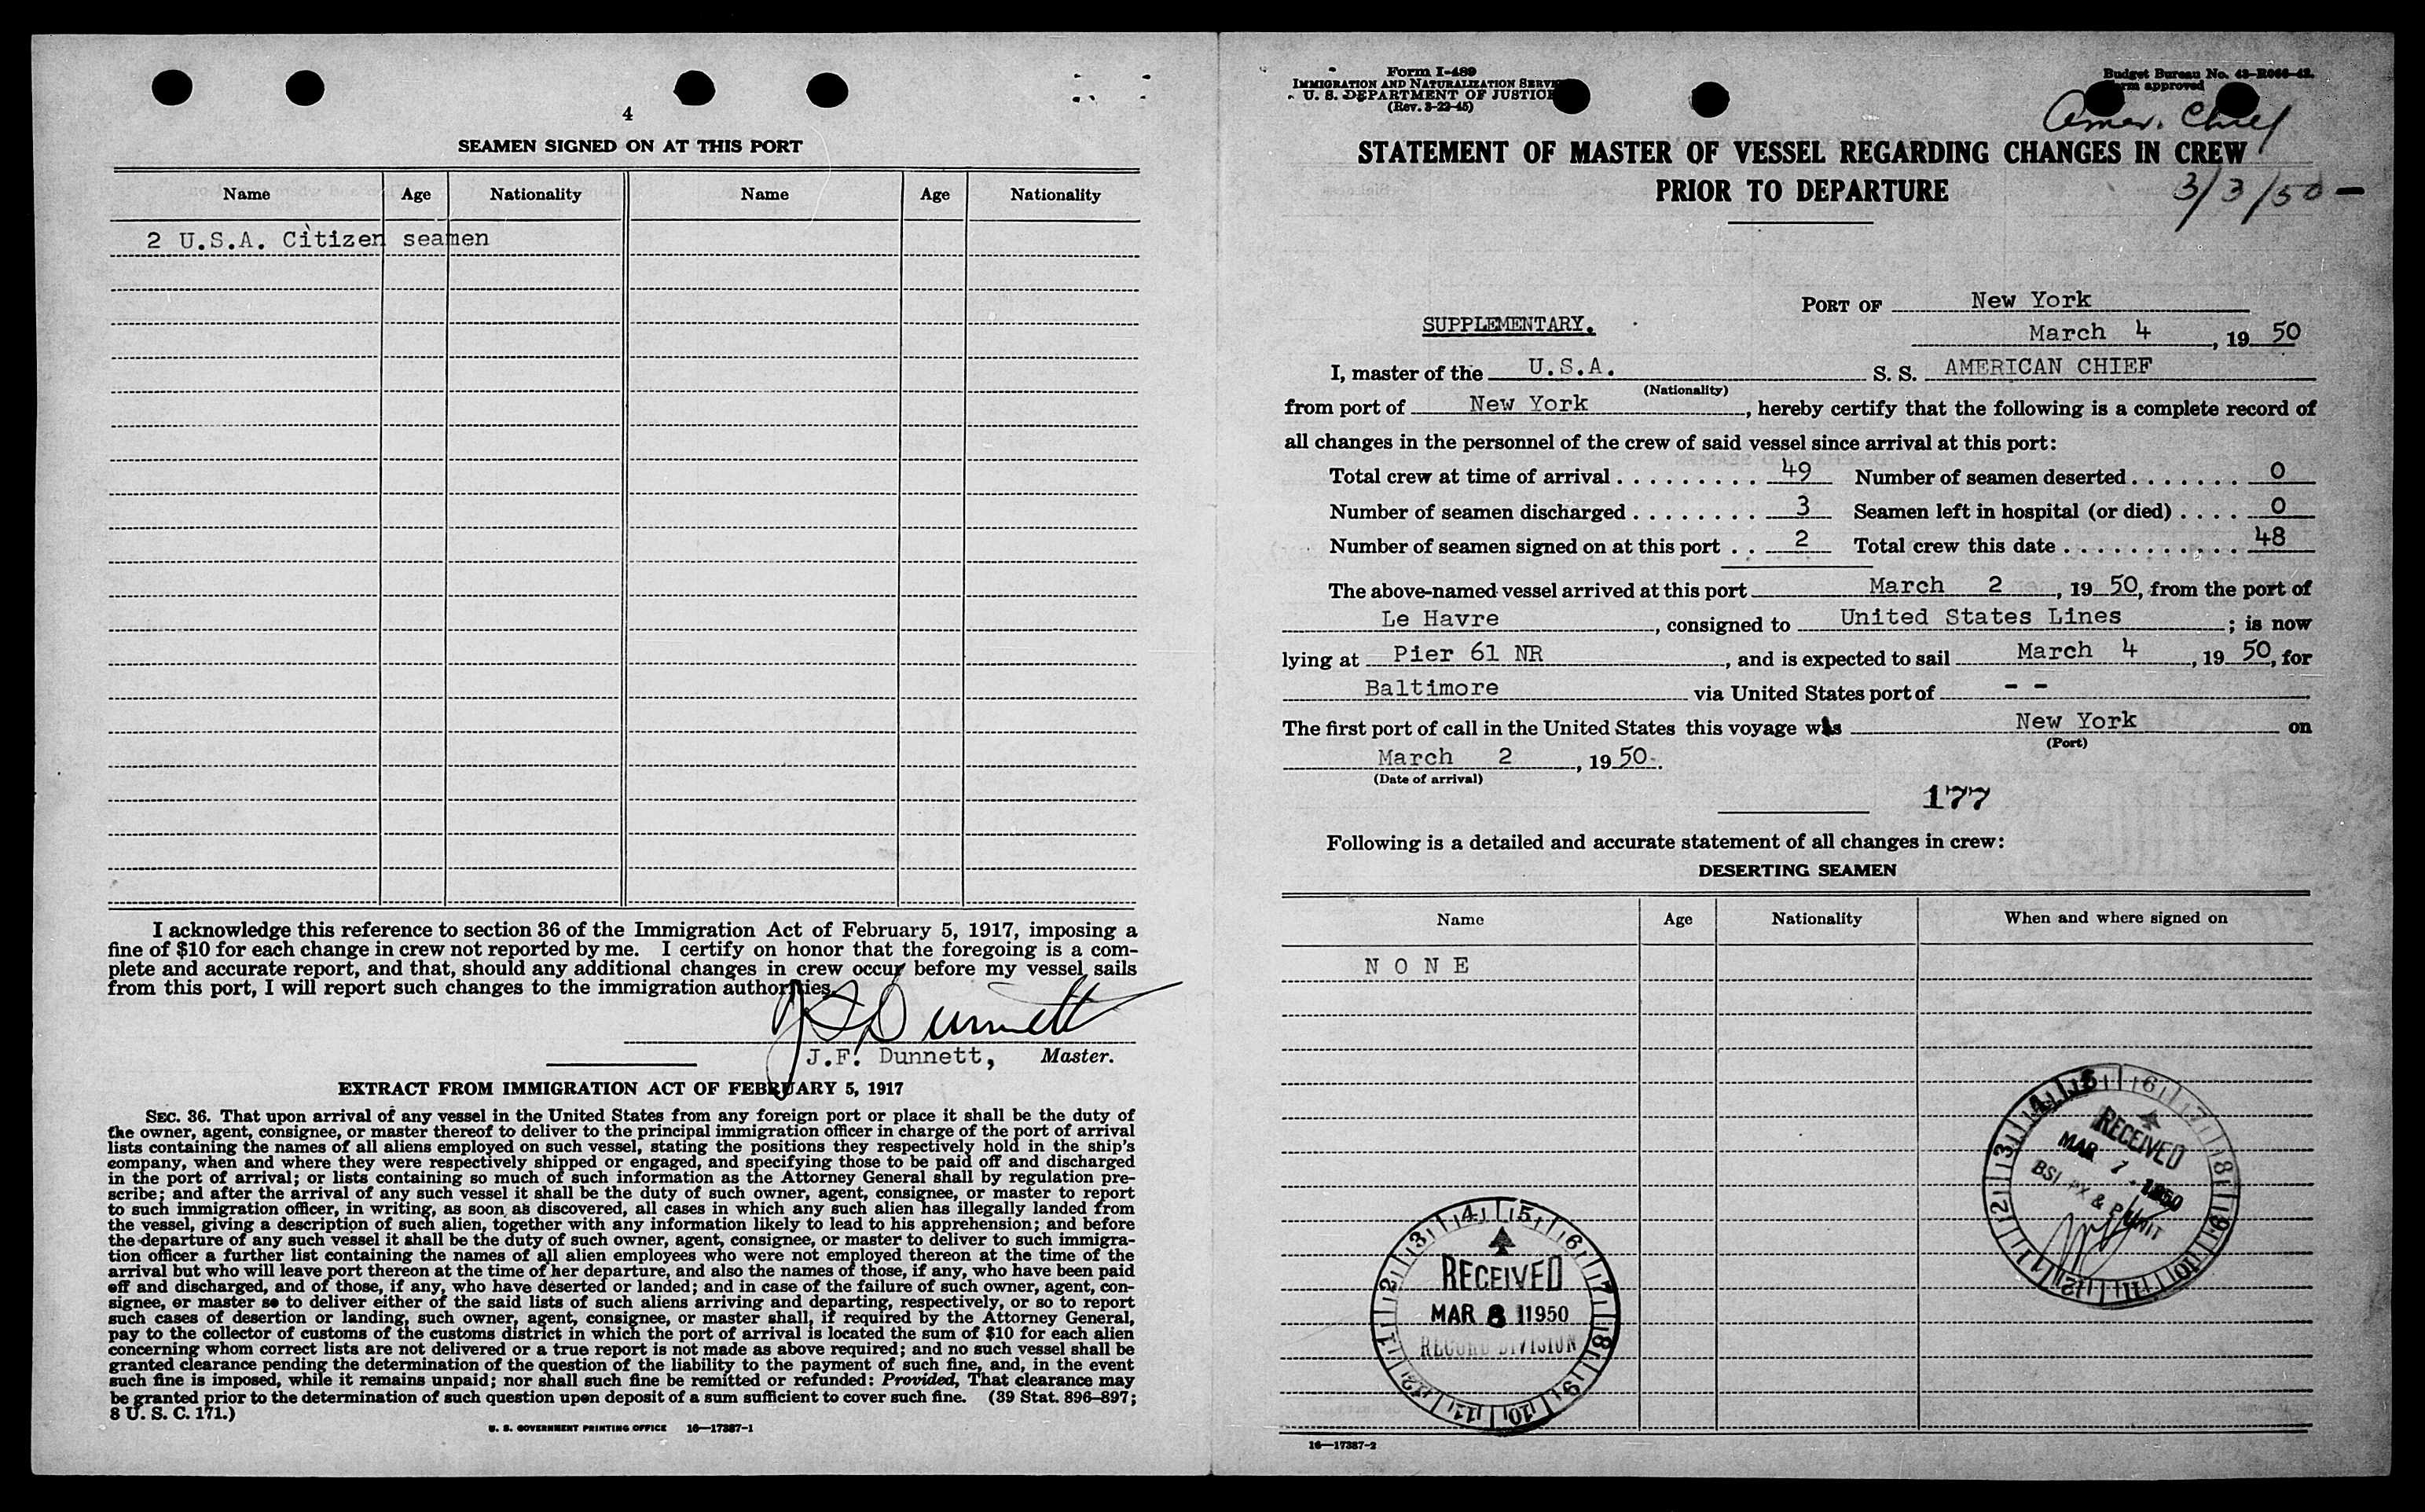 4
SEAMEN SIGNED ON AT THIS PORT
Name Age Nationality Name Age Nationality
2 U.S.A. Citizen seamen
I acknowledge this reference to section 36 of the Immigration Act of February 5, 1917, imposing a
fine of $10 for each change in crew not reported by me. I certify on honor that the foregoing is a com-
plete and accurate report, and that, should any additional changes in crew occur before my vessel sails
from this port, I will report such changes to the immigration authorities.
J F Dunnett
J.F. Dunnett, Master.
EXTRACT FROM IMMIGRATION ACT OF FEBRUARY 5, 1917
SEC. 36. That upon arrival of any vessel in the United States from any foreign port or place it shall be the duty of
the owner, agent, consignee, or master thereof to deliver to the principal immigration officer in charge of the port of arrival
lists containing the names of all aliens employed on such vessel, stating the positions they respectively hold in the ship's
company, when and where they were respectively shipped or engaged, and specifying those to be paid off and discharged
in the port of arrival; or lists containing so much of such information as the Attorney General shall by regulation pre-
scribe; and after the arrival of any such vessel it shall be the duty of such owner, agent, consignee, or master to report
to such immigration officer, in writing, as soon as discovered, all cases in which any such alien has illegally landed from
the vessel, giving a description of such alien, together with any information likely to lead to his apprehension; and before
the departure of any such vessel it shall be the duty of such owner, agent, consignee, or master to deliver to such immigra-
tion officer a further list containing the names of all alien employees who were not employed thereon at the time of the
arrival but who will leave port thereon at the time of her departure, and also the names of those, if any, who have been paid
off and discharged, and of those, if any, who have deserted or landed; and in case of the failure of such owner, agent, con-
signee, or master so to deliver either of the said lists of such aliens arriving and departing, respectively, or so to report
such cases of desertion or landing, such owner, agent, consignee, or master shall, if required by the Attorney General,
pay to the collector of customs of the customs district in which the port of arrival is located the sum of $10 for each alien
concerning whom correct lists are not delivered or a true report is not made as above required; and no such vessel shall be
granted clearance pending the determination of the question of the liability to the payment of such fine, and, in the event
such fine is imposed, while it remains unpaid; nor shall such fine be remitted or refunded: Provided, That clearance may
be granted prior to the determination of such question upon deposit of a sum sufficient to cover such fine. (39 Stat. 896–897;
8 U. S. C. 171.)
U. S. GOVERNMENT PRINTING OFFICE 16—17387-1
Form I-489
IMMIGRATION AND NATURALIZATION SERVICE
U. S. DEPARTMENT OF JUSTICE
(Rev. 3-22-45)
Budget Bureau No. 43-R066-42.
Form approved
Amer. Chief
STATEMENT OF MASTER OF VESSEL REGARDING CHANGES IN CREW
PRIOR TO DEPARTURE
3/3/50 -
PORT OF New York
SUPPLEMENTARY.
March 4, 19 50
I, master of the U.S.A. S. S. AMERICAN CHIEF
(Nationality)
from port of New York, hereby certify that the following is a complete record of
all changes in the personnel of the crew of said vessel since arrival at this port:
Total crew at time of arrival . . . . . . . . . 49 Number of seamen deserted . . . . . . . 0
Number of seamen discharged . . . . . . . . 3 Seamen left in hospital (or died) . . . . 0
Number of seamen signed on at this port . . 2 Total crew this date . . . . . . . . . . . 48
The above-named vessel arrived at this port March 2, 19 50, from the port of
Le Havre, consigned to United States Lines; is now
lying at Pier 61 NR, and is expected to sail March 4, 19 50, for
Baltimore via United States port of - -
The first port of call in the United States this voyage was New York on
(Port)
March 2, 19 50.
(Date of arrival)
177
Following is a detailed and accurate statement of all changes in crew:
DESERTING SEAMEN
Name Age Nationality When and where signed on
N O N E
RECEIVED
MAR 7 1950
BSI
RECEIVED
MAR 8 1950
RECORD DIVISION
16—17387-2